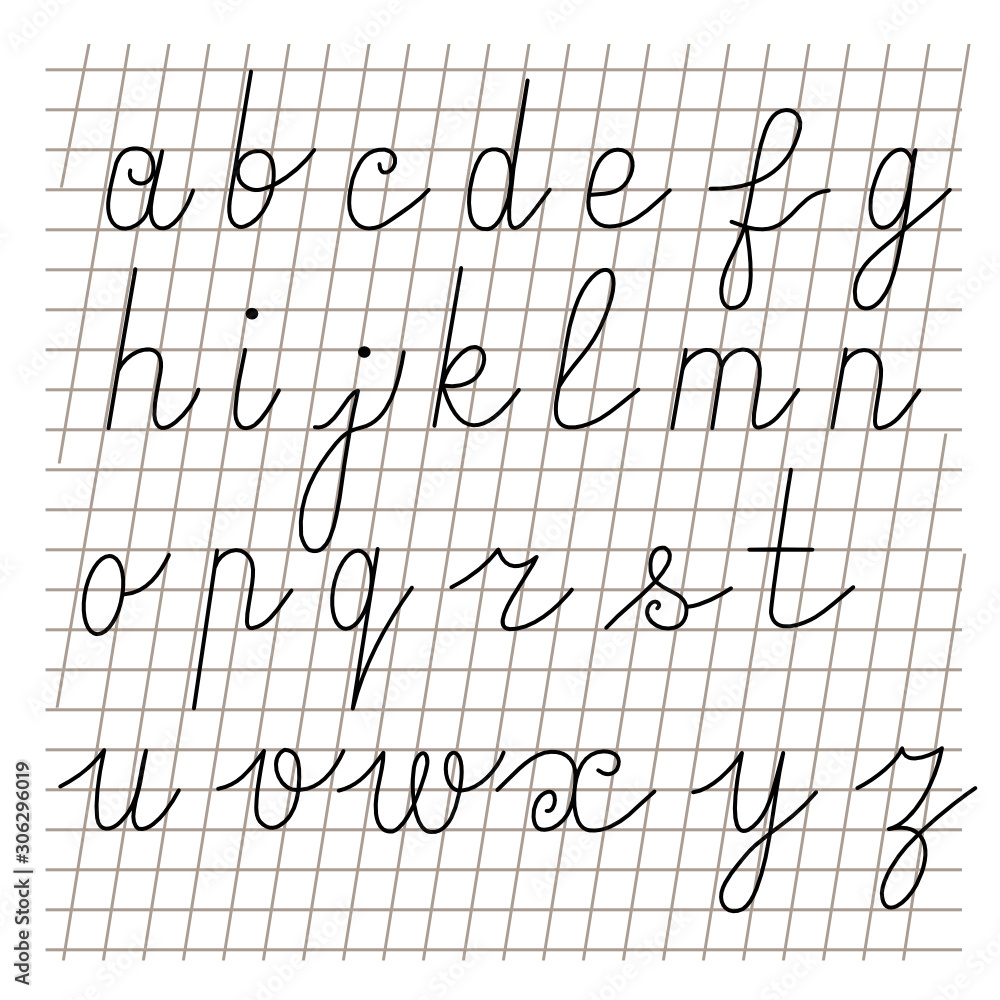 a b c d e f g
h i j k l m n
o p q r s t
u v w x y z
Adobe Stock | #306296019